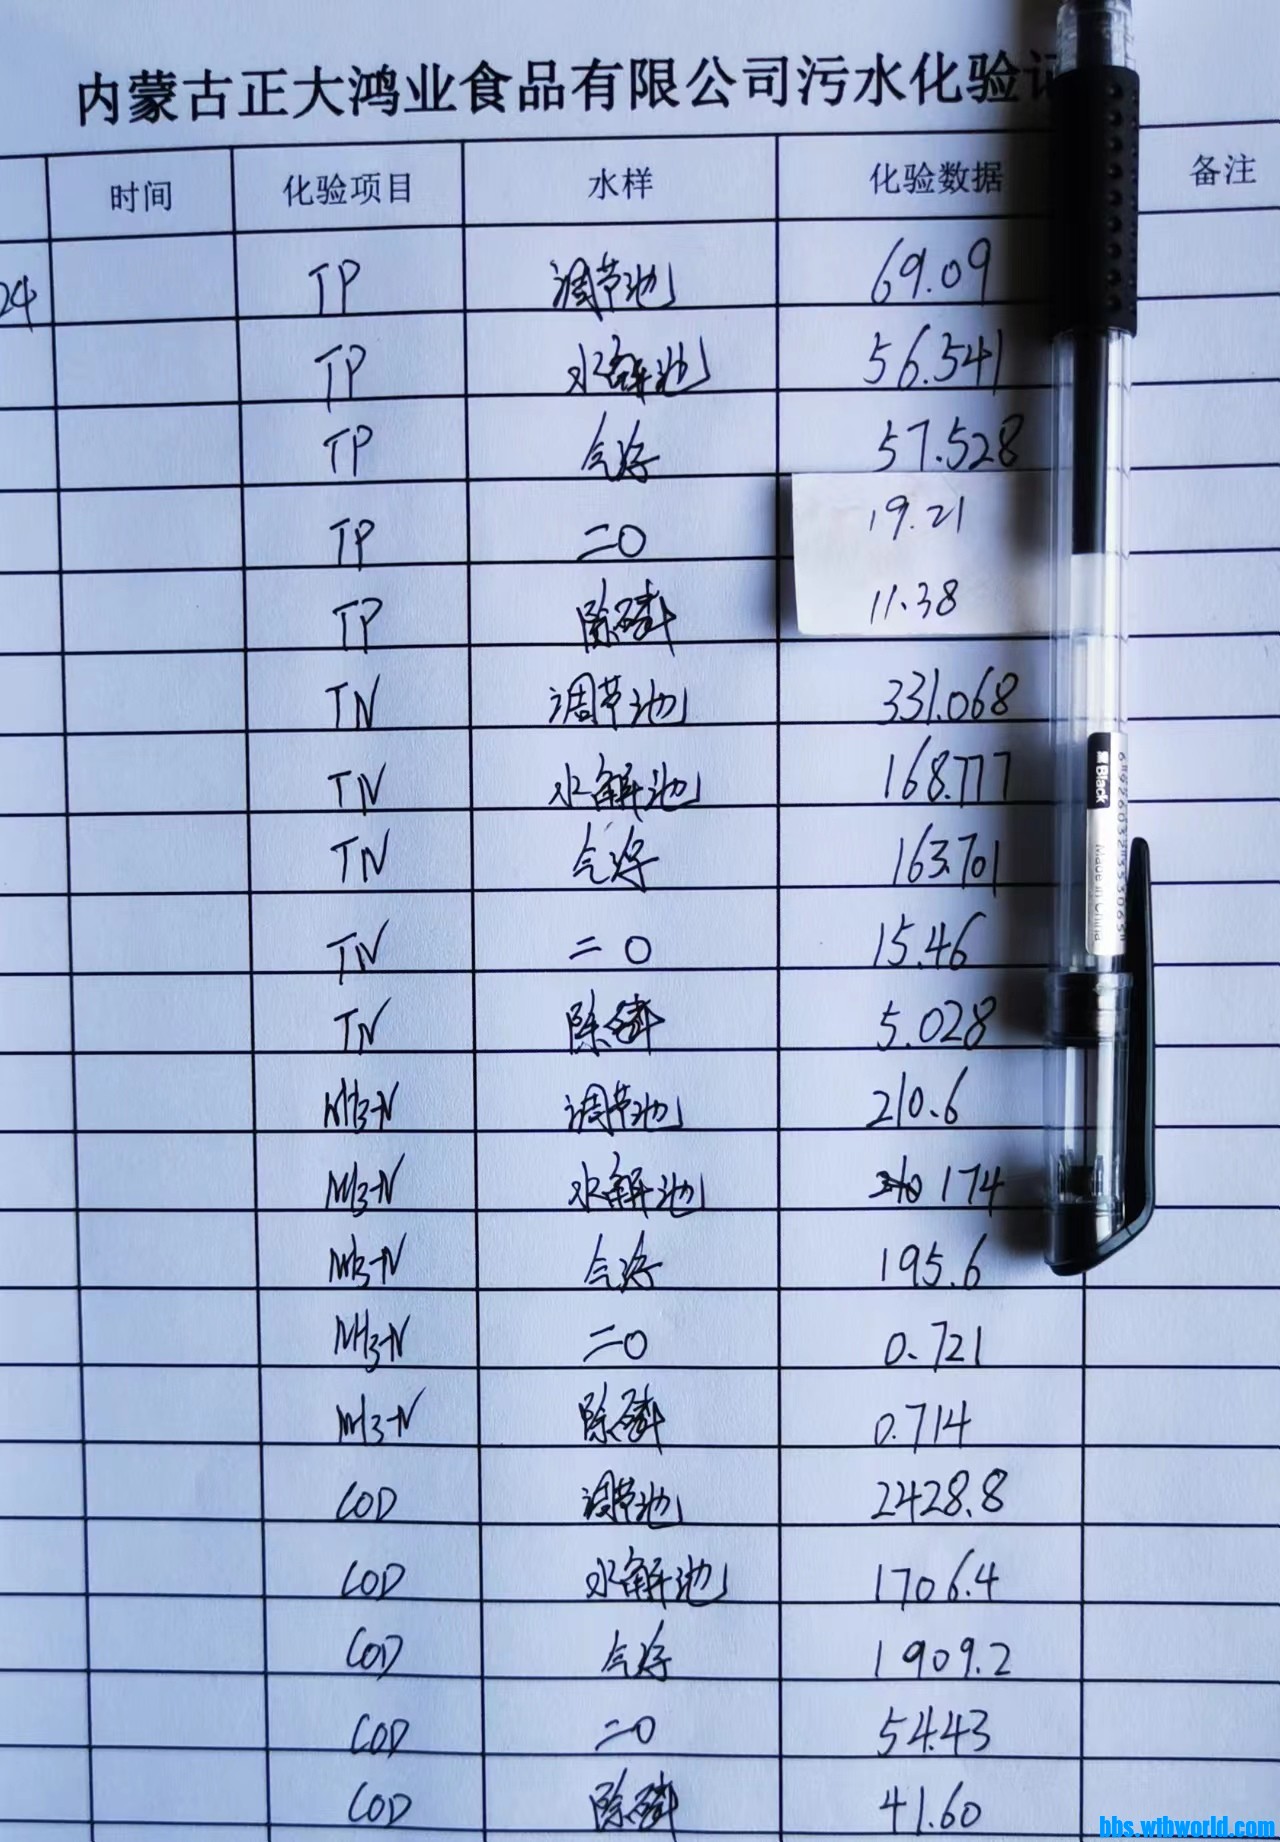 内蒙古正大鸿业食品有限公司污水化验
时间 化验项目 水样 化验数据 备注
24 TP 调节池 69.09
TP 水解池 56.541
TP 气浮 57.528
TP 二O 19.21
TP 除磷 11.38
TN 调节池 331.068
TN 水解池 168.777
TN 气浮 163.701
TN 二O 15.46
TN 除磷 5.028
NH3-N 调节池 210.6
NH3-N 水解池 174
NH3-N 气浮 195.6
NH3-N 二O 0.721
NH3-N 除磷 0.714
COD 调节池 2428.8
COD 水解池 1706.4
COD 气浮 1909.2
COD 二O 54.43
COD 除磷 41.60
黑Black
Made in China
bbs.wtbworld.com